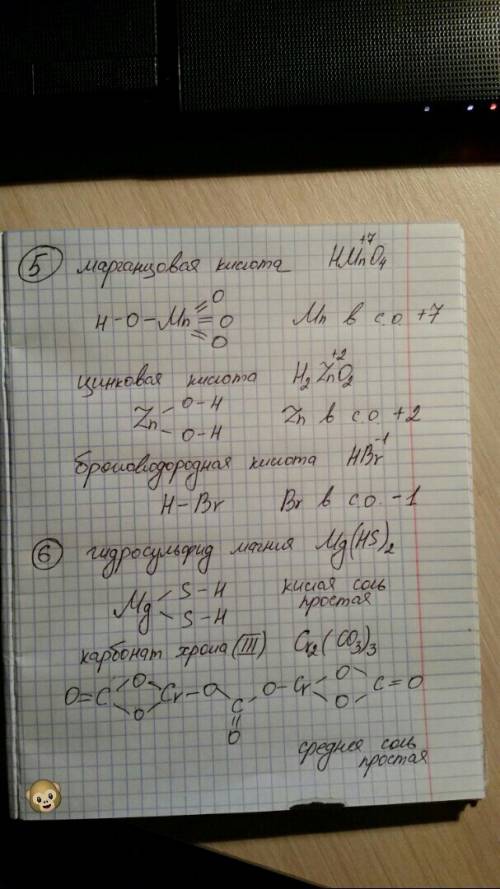 5 марганцовая кислота HMn⁺⁷O₄
H-O-Mn≡O Mn в с.о. +7
O
O
цинковая кислота H₂Zn⁺²O₂
Zn O-H Zn в с.о. +2
O-H
бромоводородная кислота HBr⁻¹
H-Br Br в с.о. -1
6 гидросульфид магния Mg(HS)₂
Mg S-H кислая соль
S-H простая
карбонат хрома (III) Cr₂(CO₃)₃
O=C O O Cr-O-C-O-Cr O O C=O
O
средняя соль
простая